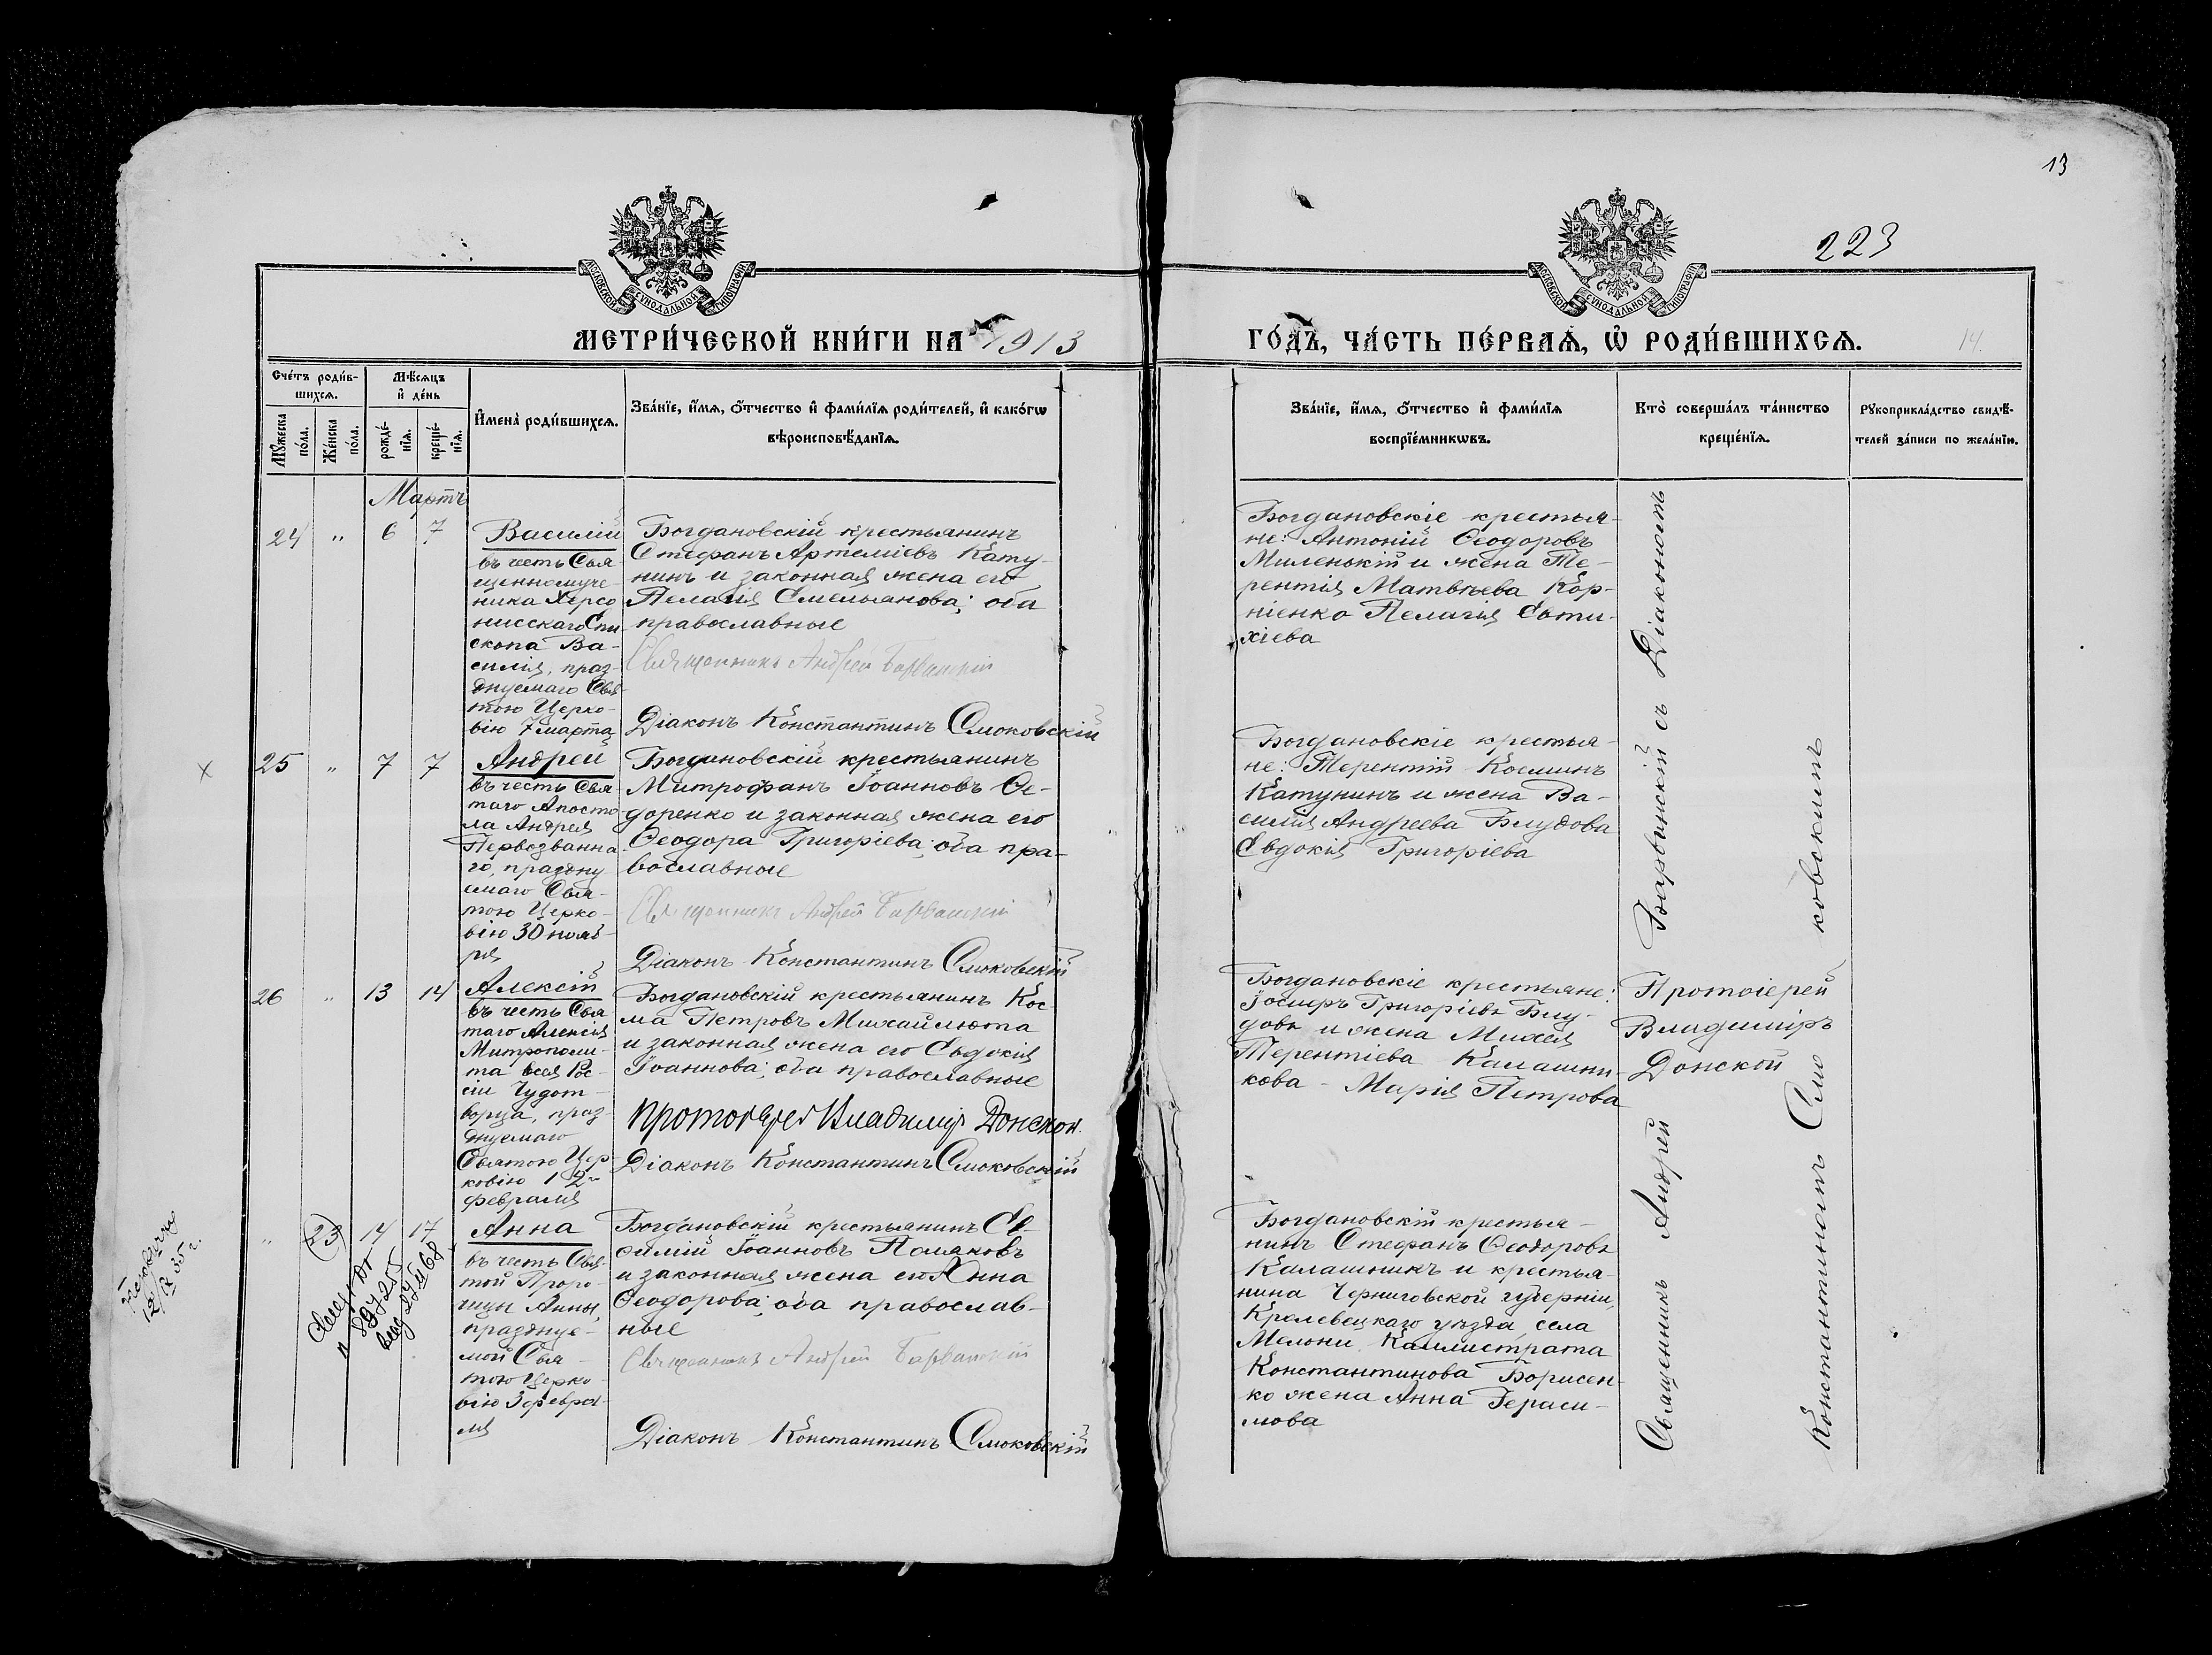 13
223
МОСКОВСКОЙ СѴНОДАЛЬНОЙ ТИПОГРАФІИ
МОСКОВСКОЙ СѴНОДАЛЬНОЙ ТИПОГРАФІИ
МЕТРИ́ЧЕСКОЙ КНИ́ГИ НА 1913
ГО́ДЪ, ЧА́СТЬ ПЕ́РВАѦ, Ѡ҆ РОДИ́ВШИХСѦ.
14.
Сче́тъ роди́в-
шихсѧ.
Мѣ́сѧцъ
и҆ де́нь
Мꙋ́жеска
по́ла.
Же́нска
по́ла.
рожде́-
нїѧ.
креще́-
нїѧ.
И҆мена̀ роди́вшихсѧ.
Зва́нїе, и҆́мѧ, ѻ҆́тчество и҆ фами́лїѧ роди́телей, и҆ како́гѡ
вѣроисповѣ́данїѧ.
Зва́нїе, и҆́мѧ, ѻ҆́тчество и҆ фами́лїѧ
воспрїе́мникѡвъ.
Кто̀ соверша́лъ та́инство
креще́нїѧ.
Рꙋкоприкла́дство свидѣ́-
телей за́писи по жела́нїю.
Мартъ
24 " 6 7
Василій
въ честь Свя-
щенномуче-
ника Херсо
нисскаго Епи-
скопа Ва-
силія, праз-
днуемаго Свя-
тою Церко-
вію 7 марта
Богдановскій крестьянинъ
Стефанъ Артеміевъ Кату-
нинъ и законная жена его
Пелагія Емельянова; оба
православные
Священникъ Андрей Барвинскій
Діаконъ Константинъ Смоковскій
Богдановскіе крестья-
не: Антоній Ѳеодоровъ
Миленькій и жена Те-
рентія Матвѣева Кор-
ніенко Пелагія Евти-
хіева
х 25 " 7 7
Андрей
въ честь Свя-
таго Апосто
ла Андрея
Первозванна-
го, праздну
емаго Свя-
тою Церко-
вію 30 нояб-
ря
Богдановскій крестьянинъ
Митрофанъ Іоанновъ Ѳе-
доренко и законная жена его
Ѳеодора Григоріева; оба пра-
вославные
Священникъ Андрей Барвинскій
Діаконъ Константинъ Смоковскій
Богдановскіе крестья-
не: Терентій Косминъ
Катунинъ и жена Ва-
силія Андреева Блудова
Евдокія Григоріева
26 " 13 14
Алексій
въ честь Свя
таго Алексія
Митрополи-
та всея Рос-
сіи Чудот-
ворца, праз-
днуемаго
Святою Цер-
ковію 12го
февраля
Богдановскій крестьянинъ Кос-
ма Петровъ Михайлюта
и законная жена его Евдокія
Іоаннова; оба православные
Протоіерей Владиміръ Донской.
Діаконъ Константинъ Смоковскій
Богдановскіе крестьяне:
Іосифъ Григоріевъ Блу-
довъ и жена Михея
Терентіева Калашни-
кова - Марія Петрова
Протоіерей
Владиміръ
Донской
" 23 14 17
Анна
въ честь Свя-
той Проро-
чицы Анны,
празднуе-
мой Свя-
тою Церко-
вію 3 февра-
ля
Богдановскій крестьянинъ Еѳ-
фимій Іоанновъ Поляковъ
и законная жена его Анна
Ѳеодорова; оба православ-
ные
Священникъ Андрей Барвинскій
Діаконъ Константинъ Смоковскій
Богдановскій крестья-
нинъ Стефанъ Ѳеодоровъ
Калашникъ и крестья-
нина Черниговской губерніи,
Кролевецкаго уѣзда села
Мелони Каллистрата
Константинова Борисен-
ко жена Анна Гераси-
мова
Священникъ Андрей Барвинскій съ Діакономъ
Константиномъ Смоковскимъ
12/IX 35 г.